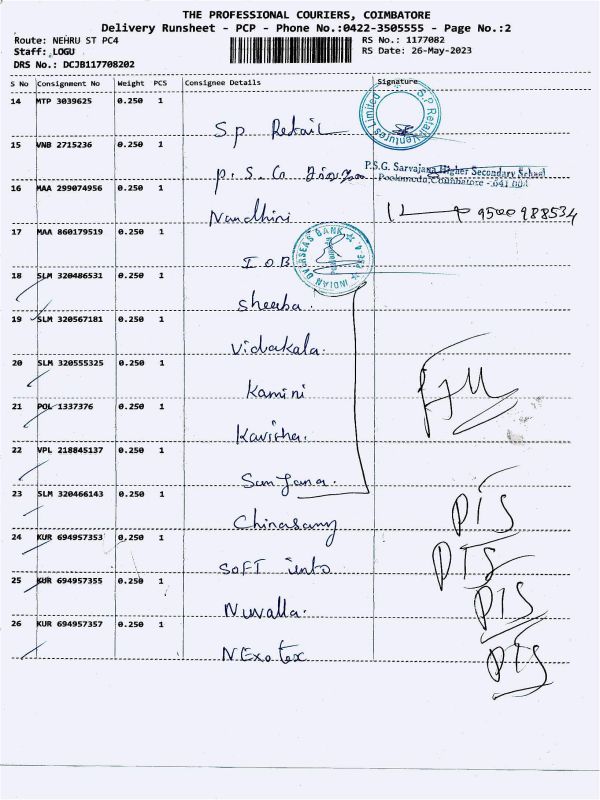 THE PROFESSIONAL COURIERS, COIMBATORE
Delivery Runsheet - PCP - Phone No.:0422-3505555 - Page No.:2
Route: NEHRU ST PC4 RS No.: 1177082
Staff: LOGU RS Date: 26-May-2023
DRS No.: DCJB117708202
S No Consignment No Weight PCS Consignee Details Signature
14 MTP 3039625 0.250 1 S.P Retail S.P Retail Ventures Limited
15 VNB 2715236 0.250 1 P.S.G P.S.G. Sarvajana Higher Secondary School
Peelamedu, Coimbatore - 641 004
16 MAA 299074956 0.250 1 Nandhini 9500988534
17 MAA 860179519 0.250 1 IOB INDIAN OVERSEAS BANK
18 SLM 320486531 0.250 1 Sheeba.
19 SLM 320567181 0.250 1 Vidyakala.
20 SLM 320555325 0.250 1 Kamini
21 POL 1337376 0.250 1 Kavisha.
22 VPL 218845137 0.250 1 Sanjana.
23 SLM 320466143 0.250 1 Chinasamy
24 KUR 694957353 0.250 1 SOFT
25 KUR 694957355 0.250 1 Nuvalla.
26 KUR 694957357 0.250 1 NExotex